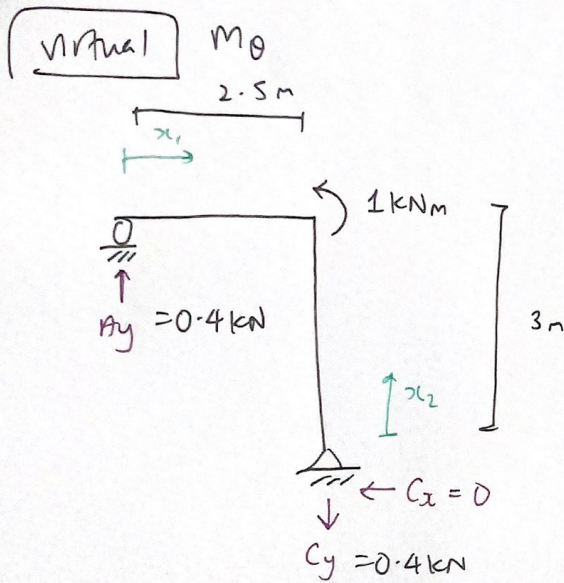 virtual mθ
2.5m
x₁
1kNm
Ay =0.4kN
3m
x₂
← Cx = 0
Cy =0.4kN